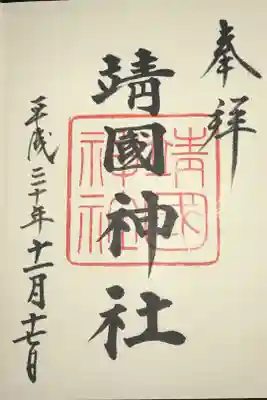 奉拝
靖國神社
靖國神社
平成二十年十一月十七日